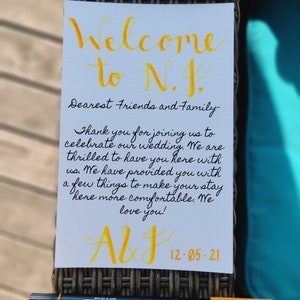 Welcome
to N.J.
Dearest Friends and Family-
Thank you for joining us to
celebrate our wedding. We are
thrilled to have you here with
us. We have provided you with
a few things to make your stay
here more comfortable. We
love you!
A&J
12·05·21